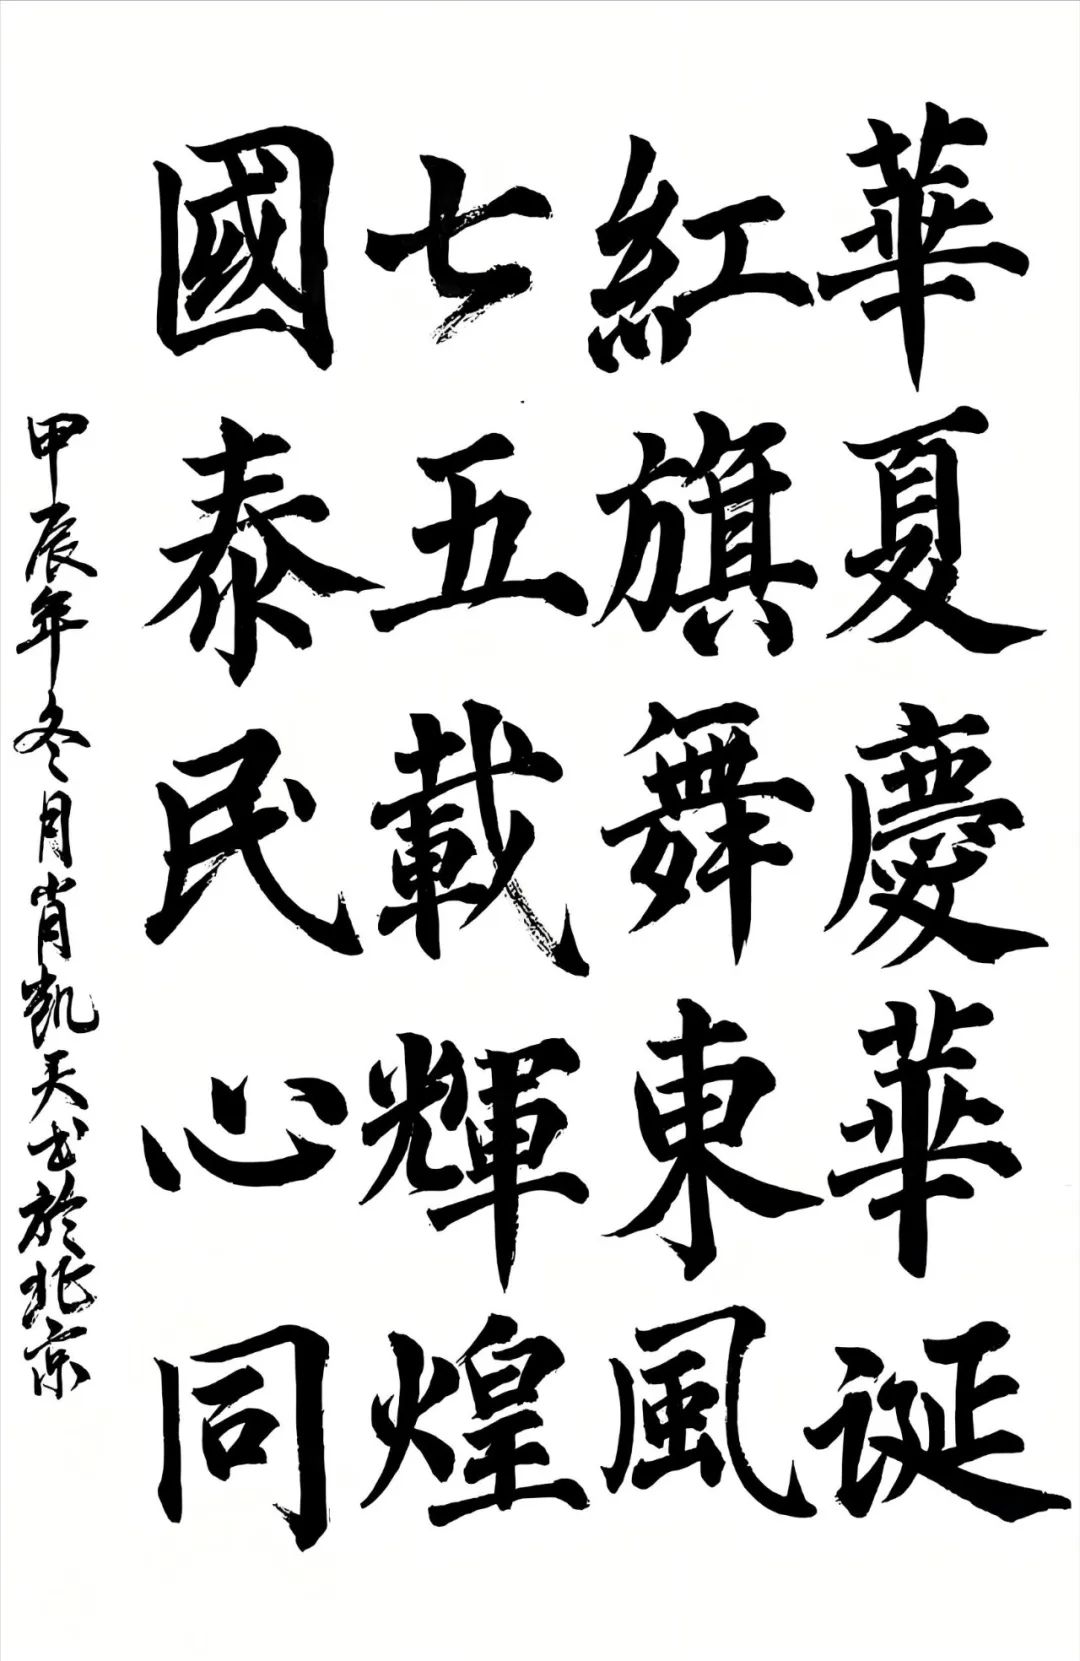 華夏慶華誕
紅旗舞東風
七五載輝煌
國泰民心同
甲辰年冬月肖凱天书於北京